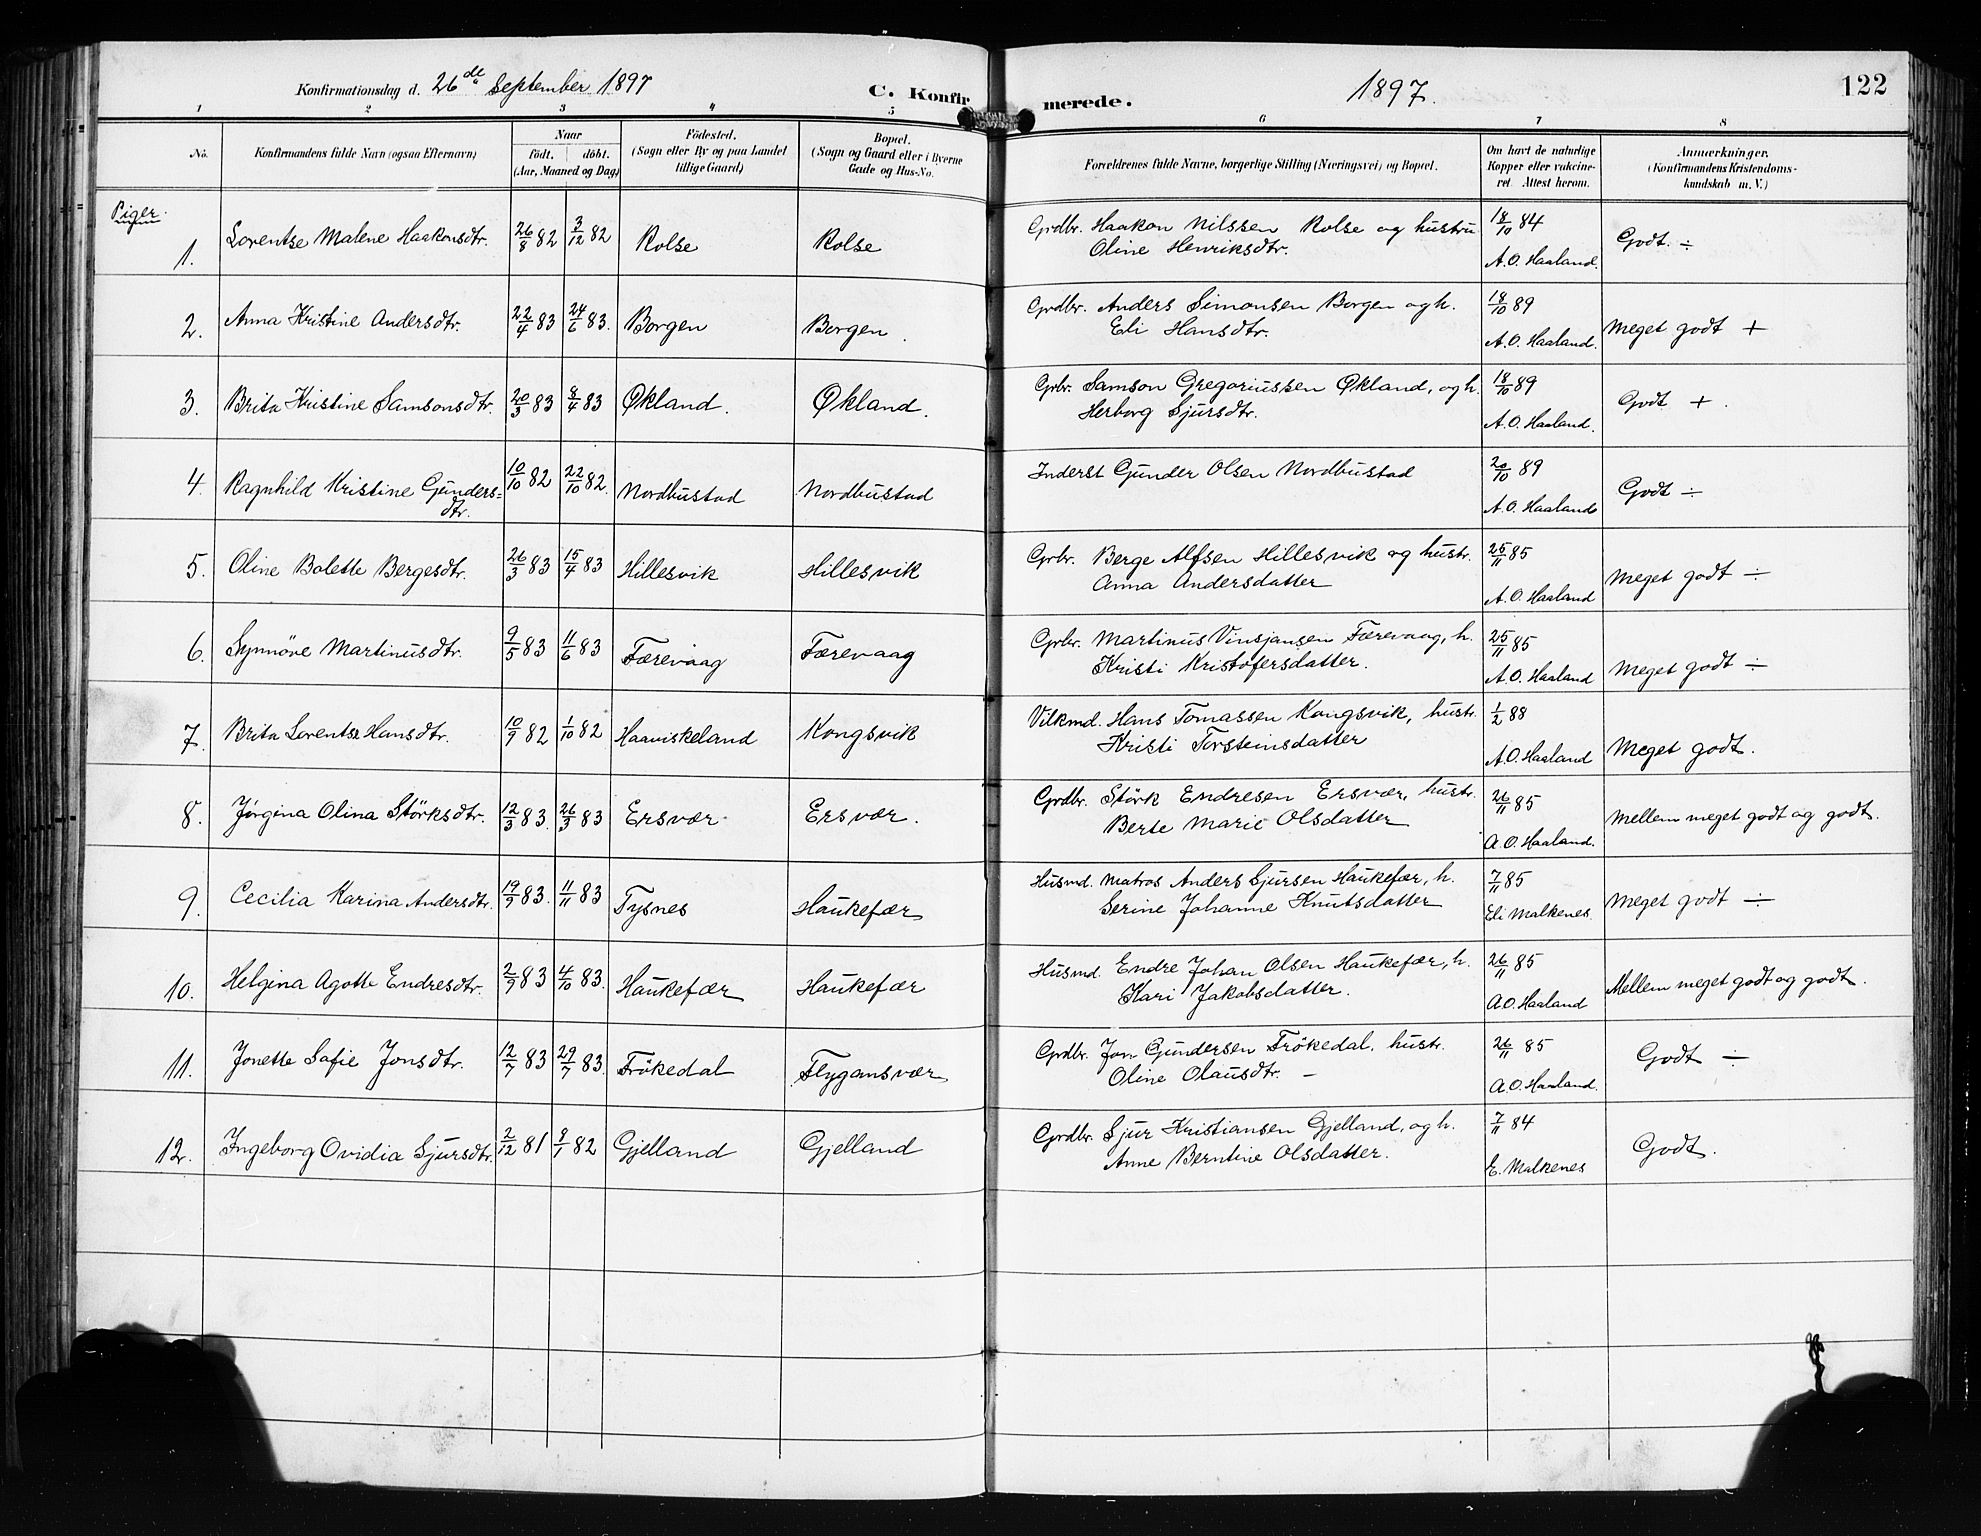 Konfirmationsdag d. 26de September 1897
C. Konfirmerede.
1897.
122
1 2 3 4 5 6 7 8
No.
Konfirmandens fulde Navn (ogsaa Efternavn)
Naar
födt. döbt.
(Aar, Maaned og Dag)
Födested.
(Sogn eller By og paa Landet
tillige Gaard)
Bopæl.
(Sogn og Gaard eller i Byerne
Gade og Hus-No.
Forældrenes fulde Navne, borgerlige Stilling (Næringsvei) og Bopæl.
Om havt de naturlige
Kopper eller vakcine-
ret. Attest herom.
Anmærkninger.
(Konfirmandens Kristendoms-
kundskab m. V.)
Piger.
1. Lorentse Malene Haakonsdtr. 26/8 82 3/12 82 Rolse Rolse Grdbr. Haakon Nilssen Rolse og hustru 18/10 84 Godt. ÷
Oline Henriksdtr. A. O. Haaland.
2. Anna Kristine Andersdtr. 22/4 83 24/6 83. Borgen Borgen. Grdbr. Anders Simonsen Borgen og h. 18/10 89 Meget godt +
Eli Hansdtr. A. O. Haaland.
3. Brita Kristine Samsonsdtr. 20/3 83 8/4 83 Økland. Økland. Grbr. Samson Gregoriussen Økland, og h. 18/10 89 Godt +.
Herborg Sjursdtr. A. O. Haaland.
4. Ragnhild Kristine Gunders= 10/10 82 22/10 82. Nordbustad Nordbustad Inderst Gunder Olsen Nordbustad 20/10 89 Godt ÷
dtr. A. O. Haaland
5. Oline Bolette Bergesdtr. 26/3 83 15/4 83 Hillesvik Hillesvik Grbr. Berge Alfsen Hillesvik og hustr. 25/11 85 Meget godt ÷
Anna Andersdatter A. O. Haaland
6. Synnöve Martinusdtr. 9/5 83 11/6 83 Færevaag Færevaag Grbr. Martinus Vinsjansen Færevaag, h. 25/11 85 Meget godt ÷
Kristi Kristofersdatter. A. O. Haaland
7. Brita Lorentse Hansdtr. 10/9 82 1/10 82 Haaviskeland Kongsvik Vilkmd. Hans Tomassen Kongsvik, hustr. 1/2 88 Meget godt.
Kristi Torsteinsdatter A. O. Haaland
8. Jørgina Olina Störksdtr. 12/3 83. 26/3 83 Ersvær Ersvær. Grdbr. Störk Endresen Ersvær, hustr. 26/11 85 Mellem meget godt og godt.
Berte Marie Olsdatter A. O. Haaland.
9. Cecilia Karina Andersdtr. 19/9 83. 11/11 83 Tysnes Haukefær Husmd. Matros Anders Sjursen Haukefær, h. 7/11 85 Meget godt ÷
Serine Johanne Knutsdatter Eli Malkenes.
10. Helgina Agotte Endresdtr. 2/9 83 4/10 83. Haukefær Haukefær Husmd. Endre Johan Olsen Haukefær, h. 26/11 85 Mellem meget godt og godt.
Kari Jakobsdatter. A. O. Haaland
11. Jonette Sofie Jonsdtr. 12/7 83 29/7 83. Frökedal Flygansvær Grdbr. Jon Gundersen Frökedal, hustr. 26/11 85 Godt ÷
Oline Olausdtr. – A. O. Haaland.
12. Ingeborg Ovidia Sjursdtr. 2/12 81 8/1 82 Gjelland Gjelland Grdbr. Sjur Kristiansen Gjelland, og h. 7/11 84 Godt.
Anne Berntine Olsdatter. E. Malkenes